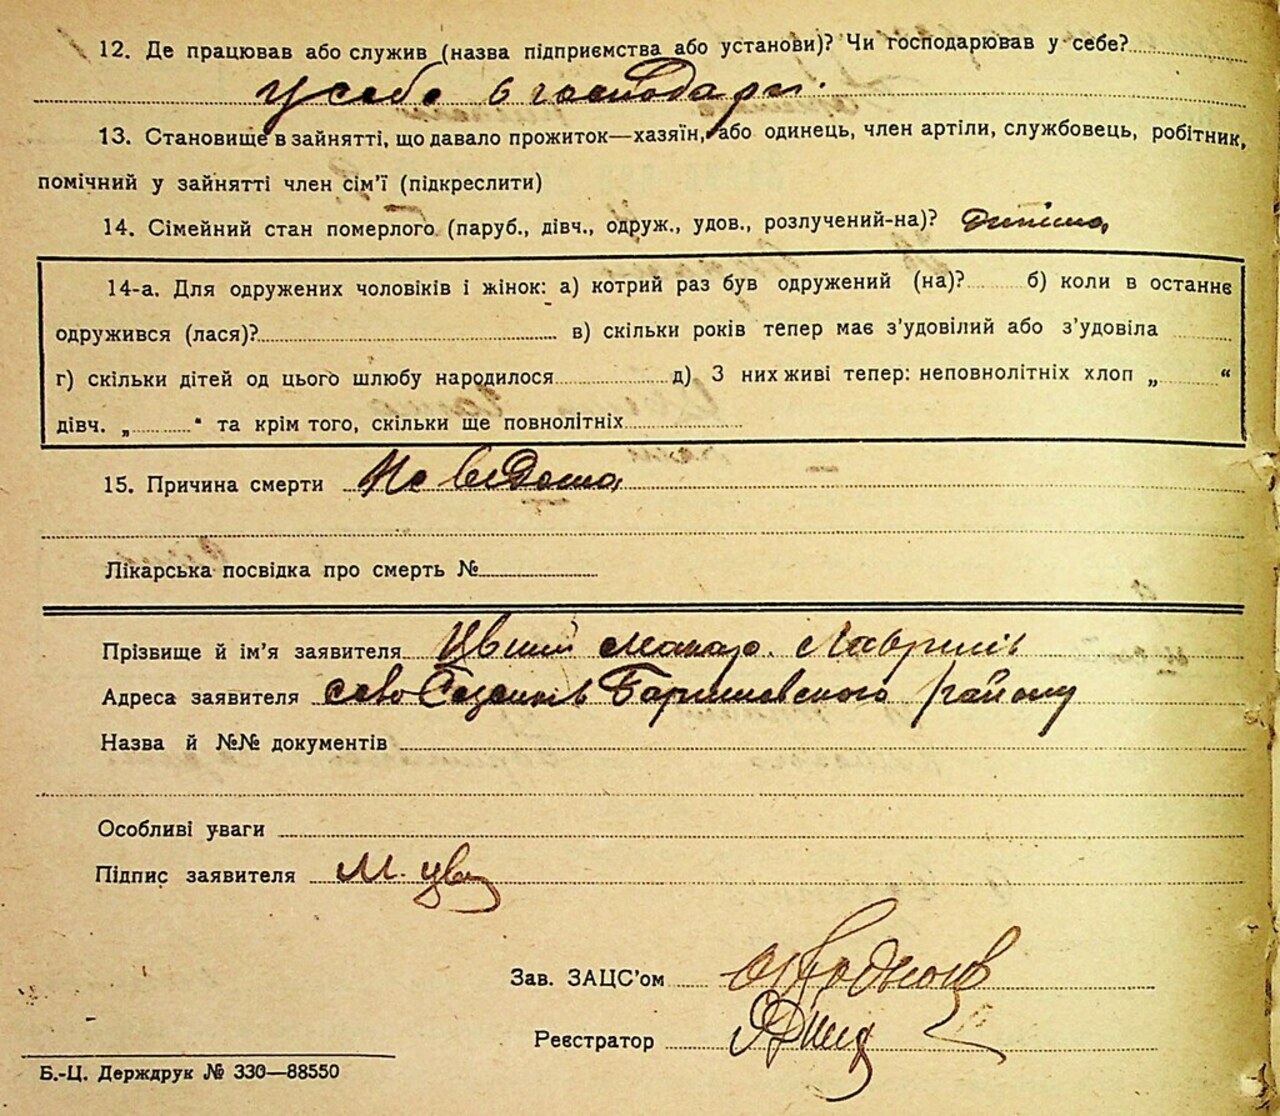 12. Де працював або служив (назва підприємства або установи)? Чи господарював у себе?
у себе в господарі
13. Становище в зайнятті, що давало прожиток—хазяїн, або одинець, член артіли, службовець, робітник,
помічний у зайнятті член сім'ї (підкреслити)
14. Сімейний стан померлого (паруб., дівч., одруж., удов., розлучений-на)? дитина
14-а. Для одружених чоловіків і жінок: а) котрий раз був одружений (на)? б) коли в останнє
одружився (лася)? в) скільки років тепер має з'удовілий або з'удовіла
г) скільки дітей од цього шлюбу народилося д) З них живі тепер: неповнолітніх хлоп „ “
дівч. „ “ та крім того, скільки ще повнолітніх
15. Причина смерти Не відома
Лікарська посвідка про смерть №
Прізвище й ім'я заявителя Макар
Адреса заявителя село Баришевского району
Назва й №№ документів
Особливі уваги
Підпис заявителя М.
Зав. ЗАЦС'ом
Реєстратор
Б.-Ц. Держдрук № 330—88550